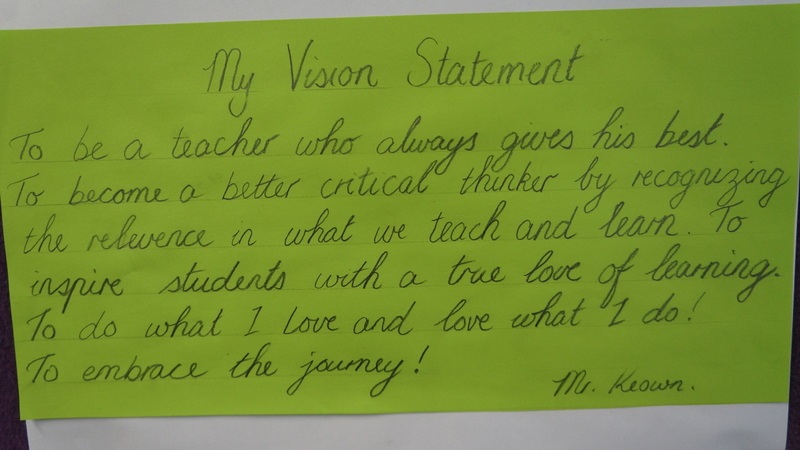 My Vision Statement
To be a teacher who always gives his best.
To become a better critical thinker by recognizing
the relevence in what we teach and learn. To
inspire students with a true love of learning.
To do what I love and love what I do!
To embrace the journey!
Mr. Keown.